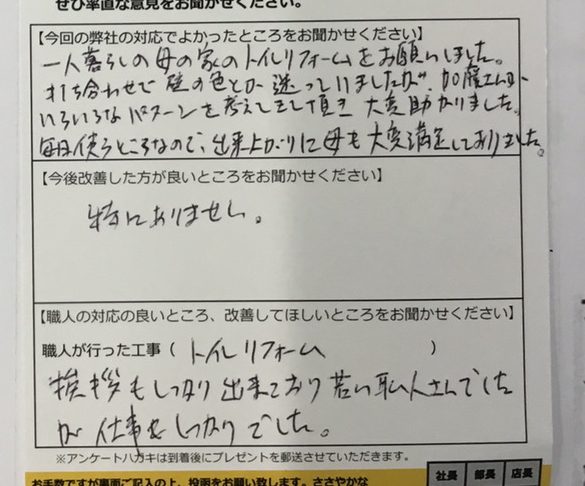 ぜひ率直な意見をお聞かせください。
【今回の弊社の対応でよかったところをお聞かせください】
一人暮らしの母の家のトイレリフォームをお願いしました。
打ち合わせで壁の色とか迷っていましたが、加藤さんが
いろいろなパターンを考えてきて頂き大変助かりました。
毎日使うところなので、出来上がりに母も大変満足しておりました。
【今後改善した方が良いところをお聞かせください】
特にありません。
【職人の対応の良いところ、改善してほしいところをお聞かせください】
職人が行った工事（ トイレリフォーム ）
挨拶もしっかり出来ており若い職人さんでした
が仕事もしっかりでした。
※アンケートハガキは到着後にプレゼントを郵送させていただきます。
お手数ですが裏面ご記入の上、投函をお願い致します。ささやかな
社長 部長 店長